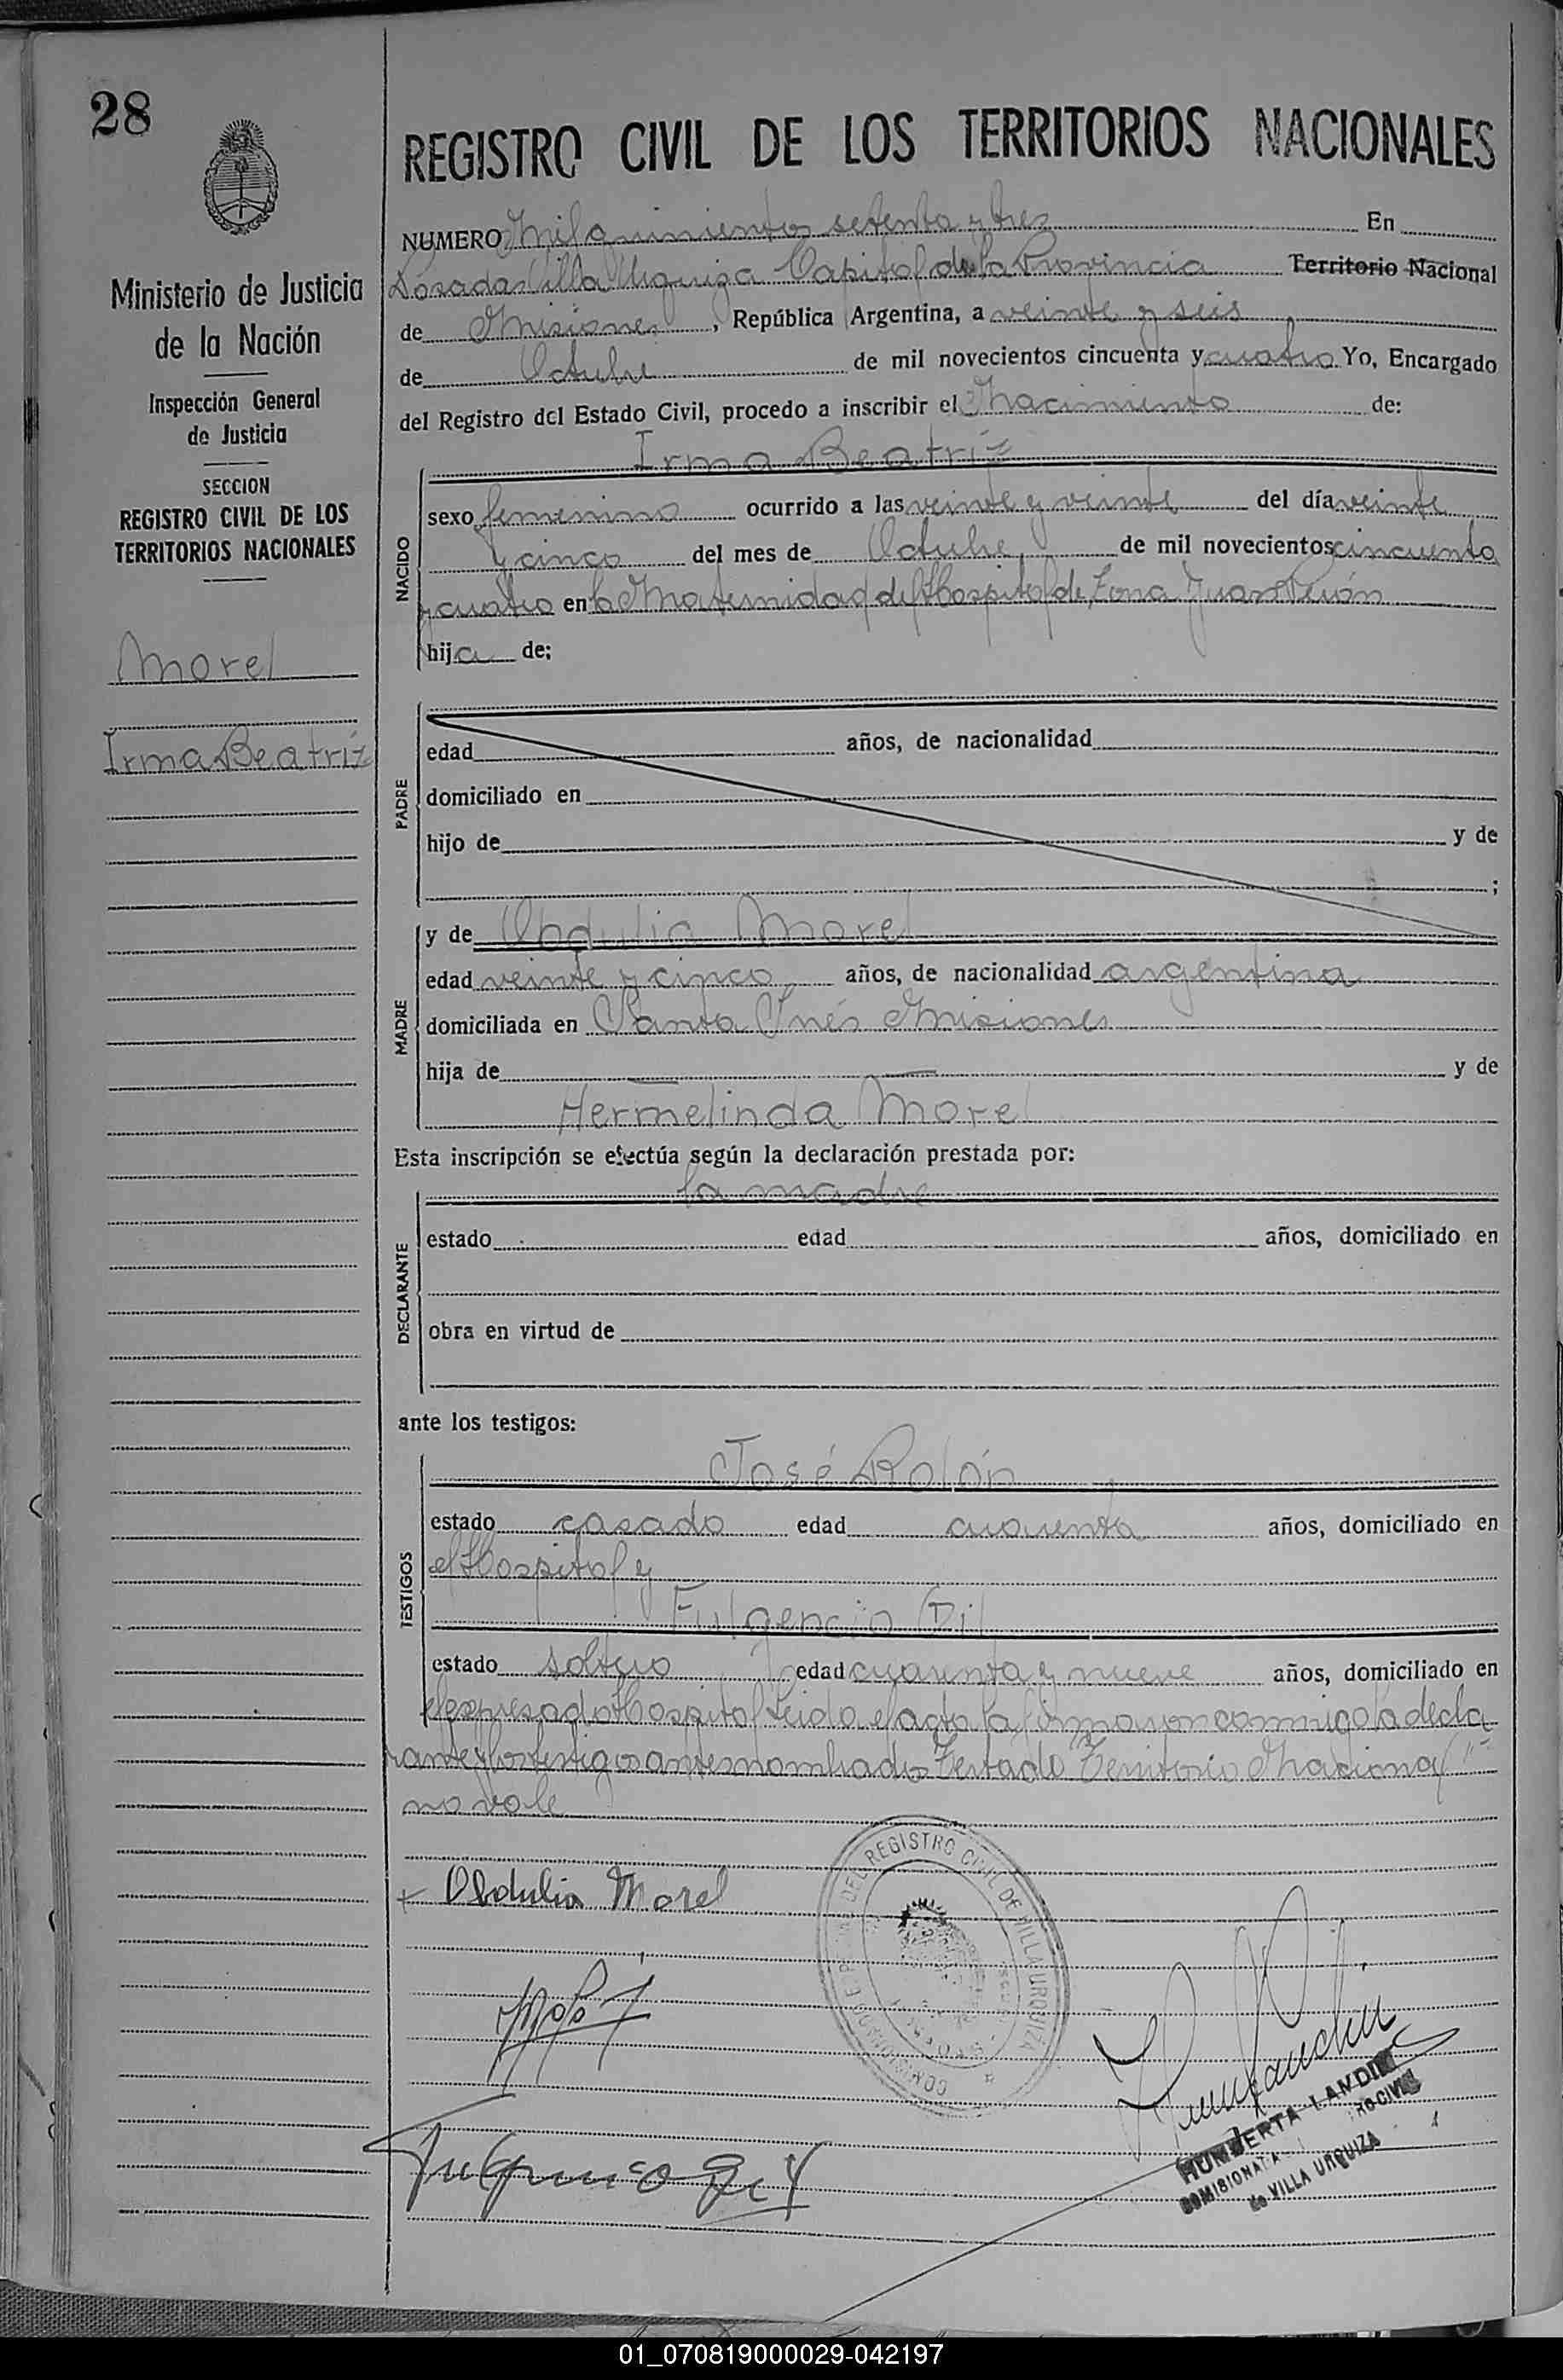 28
REGISTRO CIVIL DE LOS TERRITORIOS NACIONALES
Ministerio de Justicia
de la Nación
Inspección General
de Justicia
SECCION
REGISTRO CIVIL DE LOS
TERRITORIOS NACIONALES
Morel
Irma Beatriz
NUMERO Mil quinientos setenta y tres En
Posadas Villa Urquiza Capital de la Provincia Territorio Nacional
de Misiones, República Argentina, a veinte y seis
de Octubre de mil novecientos cincuenta y cuatro Yo, Encargado
del Registro del Estado Civil, procedo a inscribir el Nacimiento de:
Irma Beatriz
NACIDO
sexo femenino ocurrido a las veinte y veinte del día veinte
y cinco del mes de Octubre de mil novecientos cincuenta
y cuatro en la Maternidad del Hospital de Zona Juan Perón
hija de:
PADRE
edad años, de nacionalidad
domiciliado en
hijo de y de
;
MADRE
y de Obdulia Morel
edad veinte y cinco años, de nacionalidad argentina
domiciliada en Santa Inés Misiones
hija de — — y de
Hermelinda Morel
Esta inscripción se efectúa según la declaración prestada por:
la madre
DECLARANTE
estado edad años, domiciliado en
obra en virtud de
ante los testigos:
TESTIGOS
José Rolón
estado casado edad cuarenta años, domiciliado en
el Hospital y
Fulgencio Gil
estado soltero edad cuarenta y nueve años, domiciliado en
el expresado Hospital Leida el acta la firmaron conmigo la decla
rante y los testigos antes nombrados Testado "Territorio Nacional"
no vale
+ Obdulia Morel
REGISTRO CIVIL DE VILLA URQUIZA
Fulgencio Gil
HUMBERTA LANDI
COMISIONADA
de VILLA URQUIZA
01_070819000029-042197